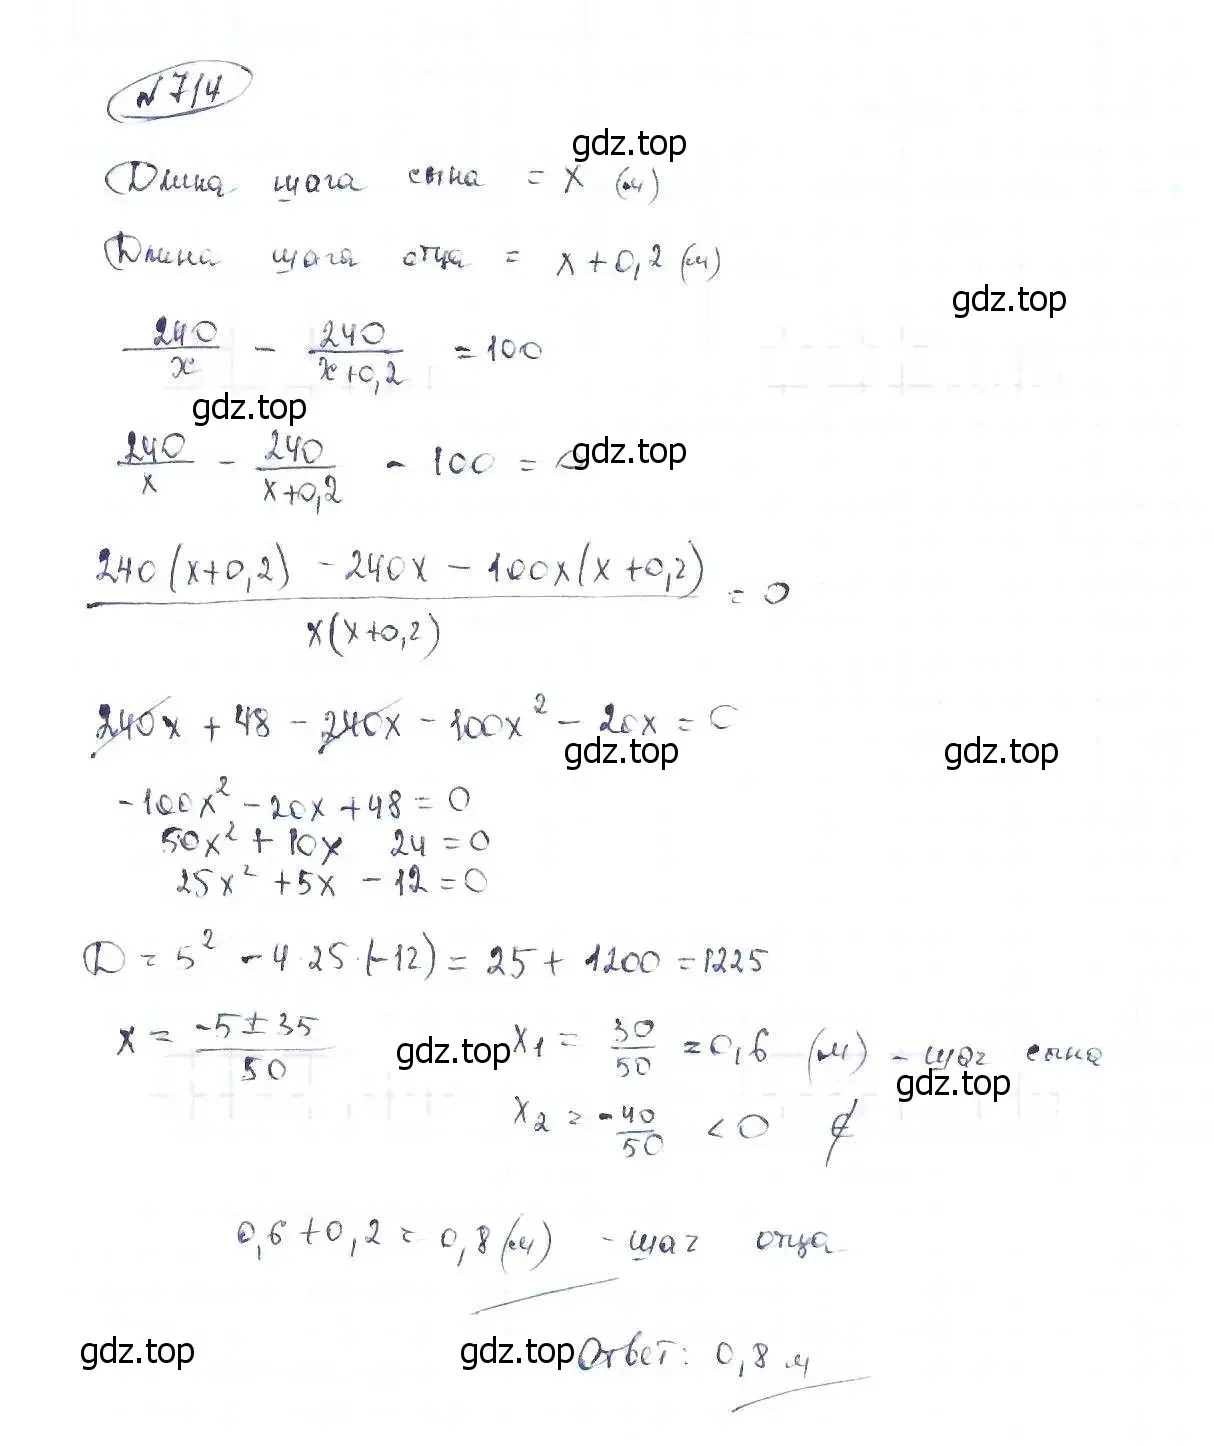 № 714
gdz.top
Длина шага сына = x (м)
Длина шага отца = x + 0,2 (м)
gdz.top
240/x - 240/(x+0,2) = 100
gdz.top
240/x - 240/(x+0,2) - 100 = 0
gdz.top
(240(x+0,2) - 240x - 100x(x+0,2))/(x(x+0,2)) = 0
240x + 48 - 240x - 100x² - 20x = 0
gdz.top gdz.top
-100x² - 20x + 48 = 0
50x² + 10x 24 = 0
25x² + 5x - 12 = 0
D = 5² - 4·25·(-12) = 25 + 1200 = 1225
x = (-5 ± 35)/50
gdz.top
x₁ = 30/50 = 0,6 (м) - шаг сына
gdz.top
x₂ = -40/50 < 0 ∉
0,6 + 0,2 = 0,8 (м) - шаг отца
gdz.top gdz.top
Ответ: 0,8 м